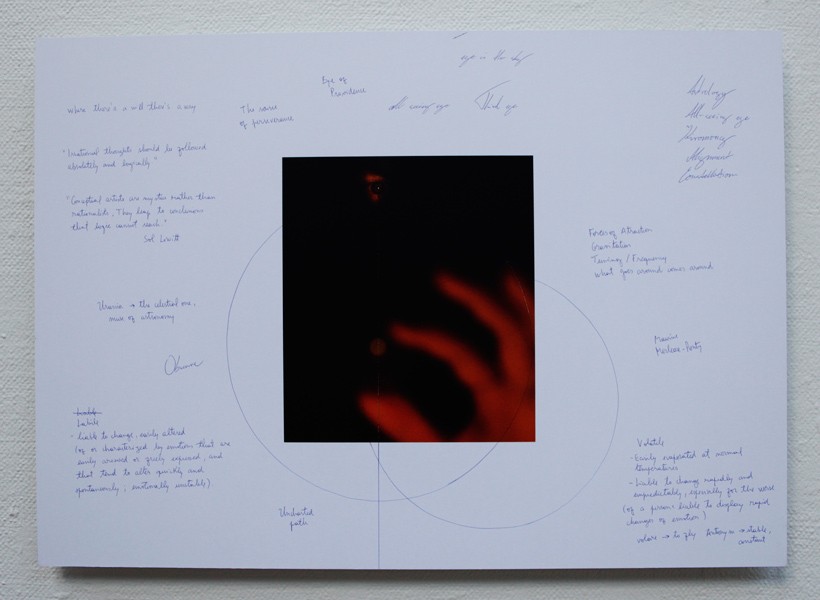 eye in the sky
Eye of
Providence
where there's a will there's a way
The source
of perseverance
All seeing eye
Third eye
Astrology
All-seeing eye
Harmony
Alignment
Constellation
"Irrational thoughts should be followed
absolutely and logically"
"Conceptual artists are mystics rather than
rationalists. They leap to conclusions
that logic cannot reach."
Sol Lewitt
Forces of Attraction
Gravitation
Tuning / Frequency
what goes around comes around
Urania → the celestial one,
muse of astronomy
Observe
Maurice
Merleau-Ponty
Labile
- liable to change, easily altered
(of or characterized by emotions that are
easily aroused or freely expressed, and
that tend to alter quickly and
spontaneously; emotionally unstable)
Uncharted
path
Volatile
- Easily evaporated at normal
temperatures
- Liable to change rapidly and
unpredictably, especially for the worse
(of a person: liable to display rapid
changes of emotion)
volare → to fly Antonym → stable,
constant